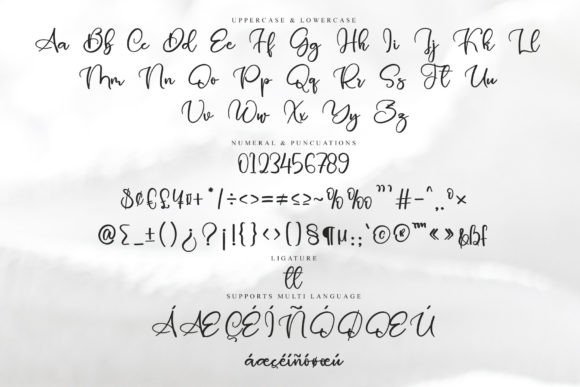 UPPERCASE & LOWERCASE
Aa Bb Cc Dd Ee Ff Gg Hh Ii Jj Kk Ll
Mm Nn Oo Pp Qq Rr Ss Tt Uu
Vv Ww Xx Yy Zz
NUMERAL & PUNCUATIONS
0123456789
$¢€£¥¤+*/÷<>=≠≤≥~%‰"'#-^,.º×
@Σ_±()¿?¡!{}‹›()§¶µ:;‘©®™«»
LIGATURE
tt
SUPPORTS MULTI LANGUAGE
ÁÆÇÉÍÑÓØŒÚ
áæçéíñóøœú